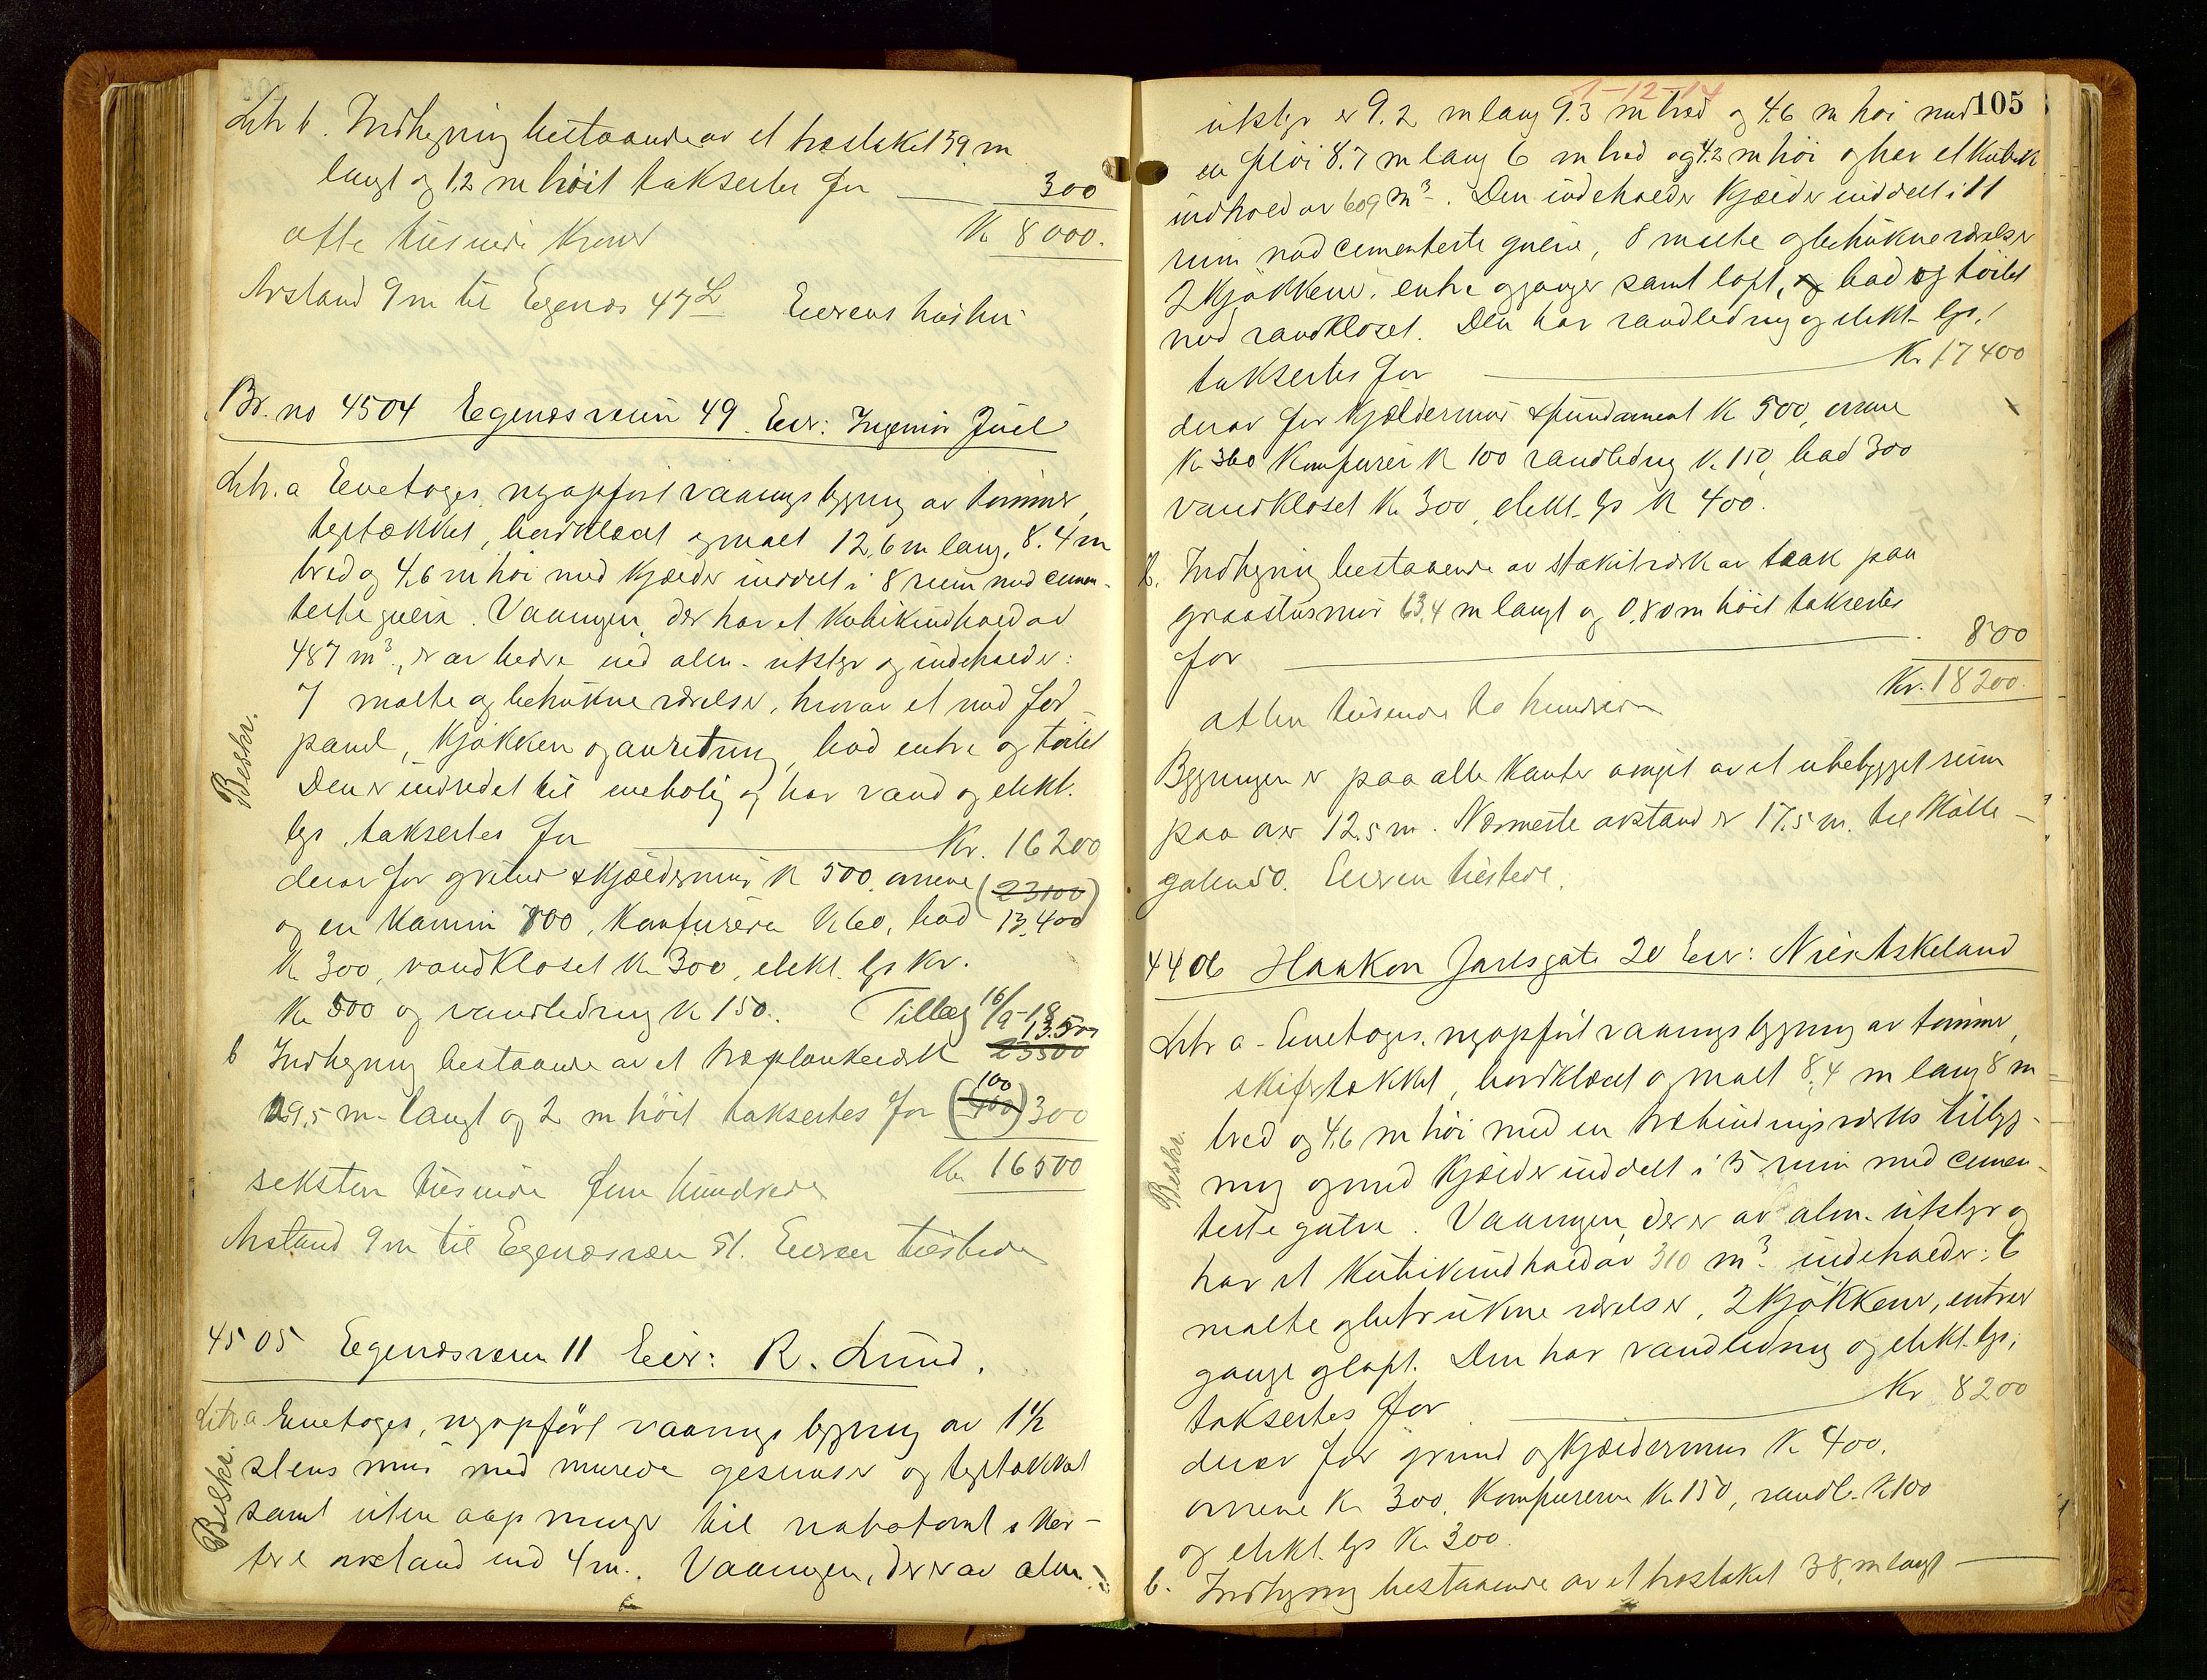 Litr b. Indhegning bestaaende av et træstaket 139 m
langt og 1.2 m höit takseres for 300
otte tusinde kroner Kr 8000.
Avstand 9 m til Egenæs 47 Eieren
Br. no 4504 Egenæsveien 49. Eier: Ingeniör Juel
Litr. a Eenetages, nyopfört vaaningsbygning av tömmer,
tegltækket, bordklædt og malt 12,6 m lang, 8.4 m
bred og 4,6 m höi med kjælder inddelt i 8 rum med cemen-
terte gulve. Vaaningen, der har et kubikindhold av
487 m³, er av bedre end alm. utstyr og indeholder:
7 malte og betrukne værelser, hvorav et med for
panel, kjökken og anretning, bad entre og toilet
Den er indredet til enebolig og har vand og elekt.
lys, takseres for Kr. 16200
derav for grund & kjældermur Kr 500, ovnene (23100)
og en kamin 700, komfuren Kr 60, bad 13,400
Kr 300, vandkloset Kr 300, elekt. lys Kr.
Kr 500 og vandledning Kr 150. (Tillæg 16/9-18
13.500
b Indhegning bestaaende av et træplankeværk 23500
29,5 m langt og 2 m höit takseres for (100 400) 300
seksten tusinde fem hundrede Kr 16500
Avstand 9 m til Egenæsveien 51. Eieren tilstede
Beskr.
4505 Egenæsveien 11 Eier: R. Lund.
Litr a Eenetages, nyopfört vaaningsbygning av 1 1/2
stens mur med murede gesimser og tegltækket
samt uten aapninger til nabotomt i kor-
tere avstand end 4 m. Vaaningen, der er av alm.
Beskr.
1-12-14
105
utstyr er 9.2 m lang 9.3 m bred og 4,6 m höi med
en flöi 8.7 m lang 6 m bred og 4,2 m höi og har et kubik
indhold av 609 m³. Den indeholder kjælder inddelt i 11
rum med cementerte gulve, 8 malte og betrukne værelser
2 kjökkener, entre og ganger samt loft, og bad og toilet
med vandkloset. Den har vandledning og elekt. lys,
takseres for Kr. 17400
derav for kjældermur & fundament Kr 500, ovnene
Kr 360 komfurer Kr 100 vandledning Kr 150, bad 300
vandkloset Kr 300, elekt. lys Kr 400.
b. Indhegning bestaaende av stakitværk av træ paa
graastensmur 63,4 m langt og 0,80 m höit takseres
for 800
Kr. 18200
atten tusinde to hundrede
Bygningen er paa alle kanter omgit av et ubebygget rum
paa over 12.5 m. Nærmeste avstand er 17.5 m. til Mölle-
gaten 50. Eieren tilstede.
4406 Haakon Jarlsgate 20 Eier: Nils Askeland
Litr a - Eenetages, nyopfört vaaningsbygning av tömmer,
skifertækket, bordklædt og malt 8,4 m lang 8 m
bred og 4,6 m höi med en træbindingsværks tilbyg-
ning og med kjælder inddelt i 5 rum med cemen-
terte gulve. Vaaningen, der er av alm. utstyr og
har et kubikindhold av 310 m³ indeholder: 6
malte og betrukne værelser, 2 kjökkener, entreer
gange og loft. Den har vandledning og elekt. lys,
takseres for Kr 8200
derav for grund og kjældermur Kr 400.
ovnene Kr 300, komfurerne Kr 150, vandl. Kr 100
og elekt. lys Kr 300.
b. Indhegning bestaaende av et træstaket 38 m langt
Beskr.